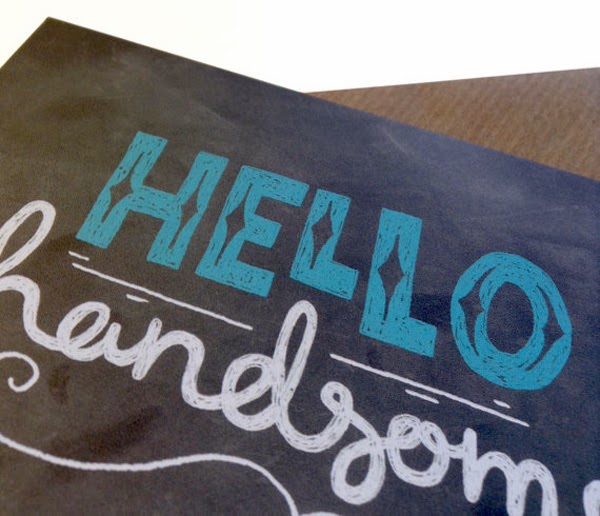 HELLO
handsom